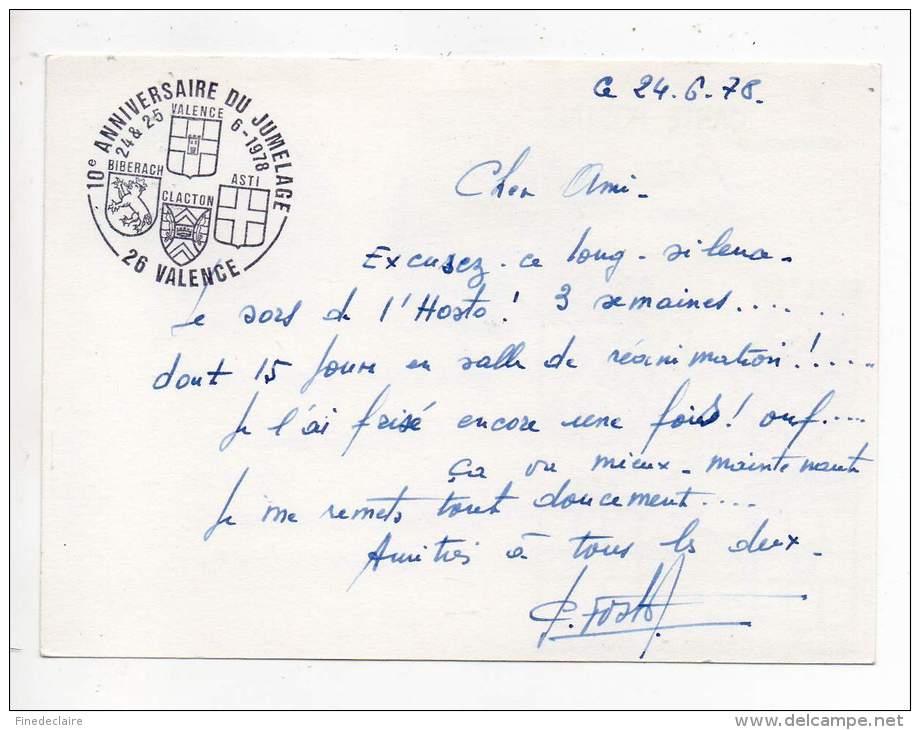 10e ANNIVERSAIRE DU JUMELAGE
24 & 25 6-1978
VALENCE
BIBERACH
ASTI
CLACTON
26 VALENCE
Ce 24.6-78.
Cher Ami-
Excusez-ce long-silence-
Je sors de l'Hosto! 3 semaines......
dont 15 jours en salle de réanimation!.....
Je l'ai frisé encore une fois! ouf....
ça va mieux-maintenant
Je me remets tout doucement....
Amitiés à tous les deux-
Finedeclaire
www.delcampe.net